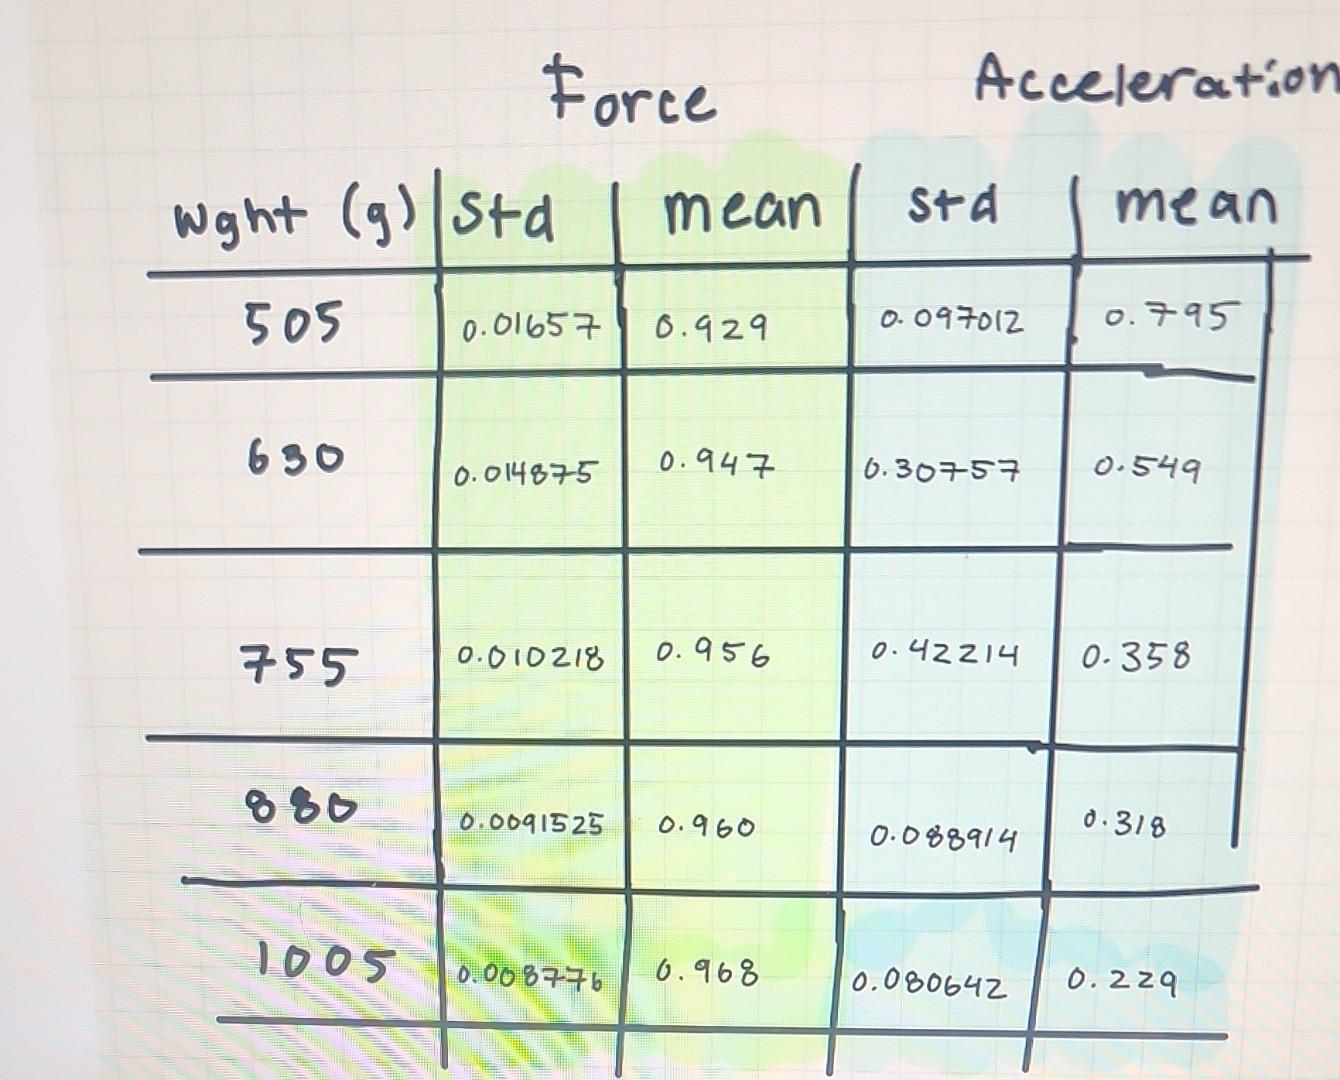 Force Acceleration
Wght (g) std mean std mean
505 0.01657 0.929 0.097012 0.795
630 0.014875 0.947 0.30757 0.549
755 0.010218 0.956 0.42214 0.358
880 0.0091525 0.960 0.088914 0.318
1005 0.008776 0.968 0.080642 0.229